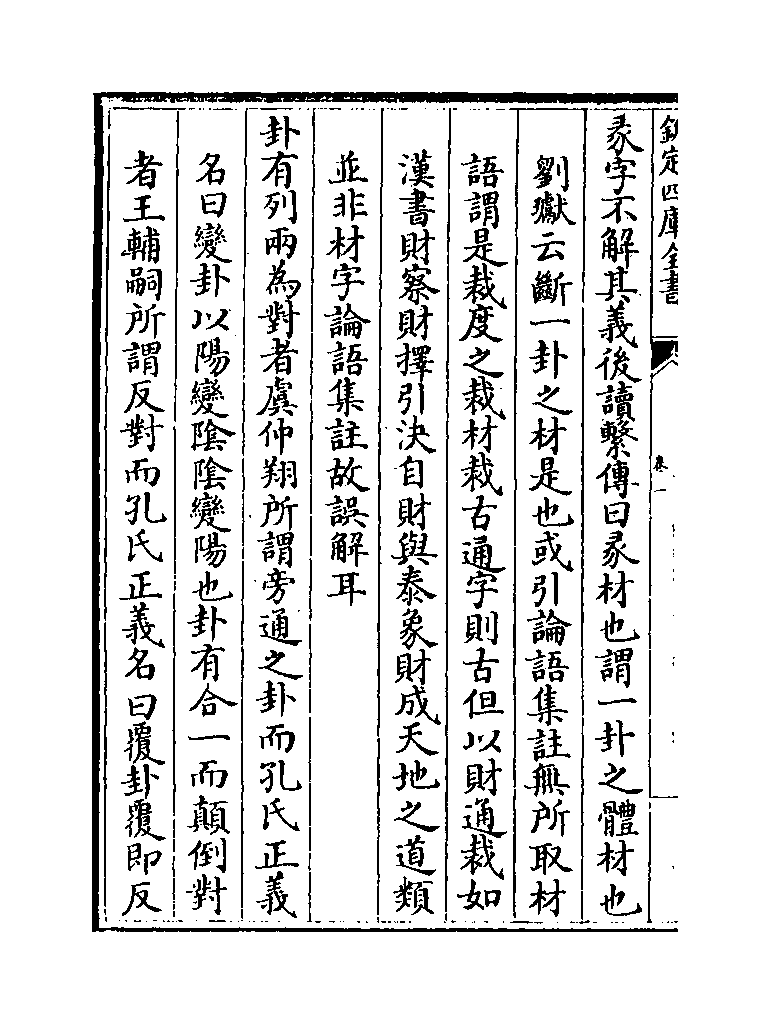 欽定四庫全書
卷一
彖字不解其義後讀繫傳曰彖材也謂一卦之體材也
劉瓛云斷一卦之材是也或引論語集註無所取材
語謂是裁度之裁材裁古通字則古但以財通裁如
漢書財察財擇引決自財與泰象財成天地之道類
並非材字論語集註故誤解耳
卦有列兩為對者虞仲翔所謂旁通之卦而孔氏正義
名曰變卦以陽變隂隂變陽也卦有合一而顛倒對
者王輔嗣所謂反對而孔氏正義名曰覆卦覆即反